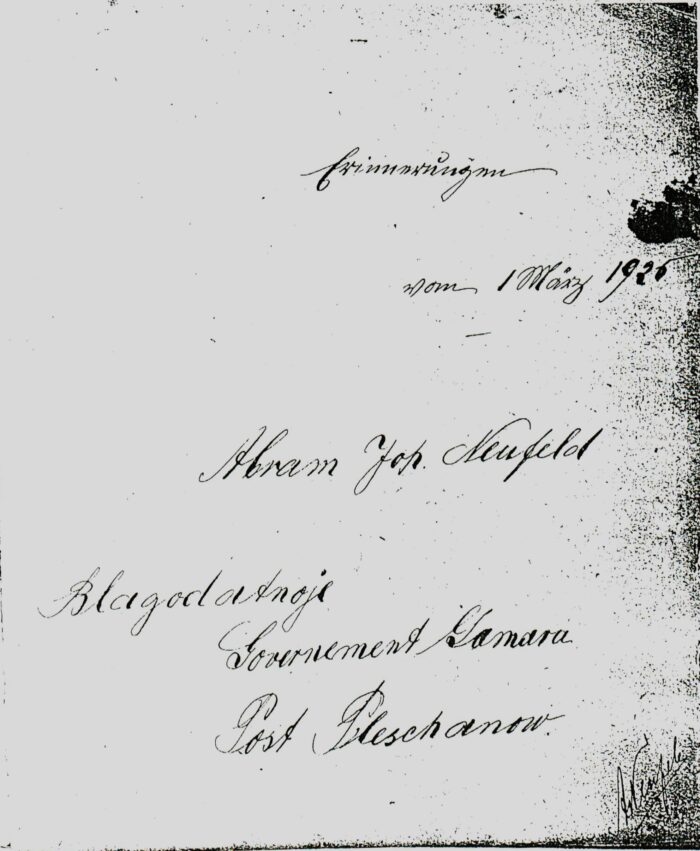 Erinnerungen
vom 1 März 1926
Abram Joh. Neufeld
Blagodatnoje
Governement Samara
Post Pleschanow.